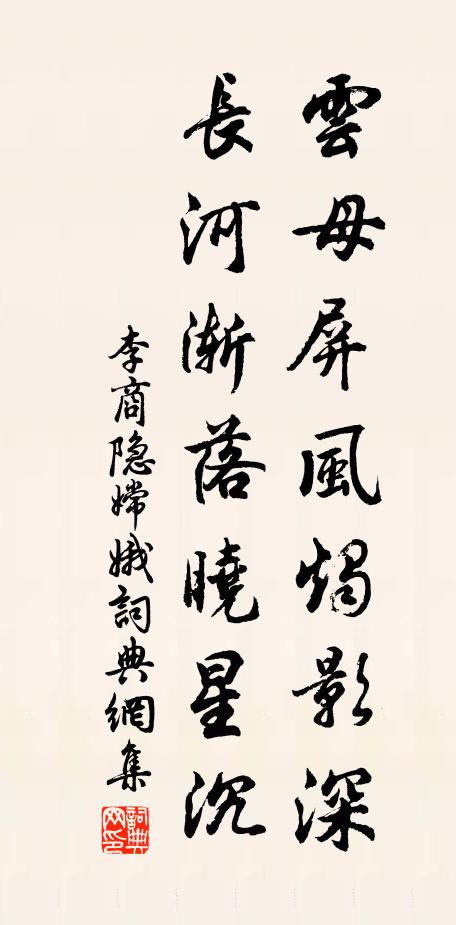 雲母屏風燭影深
長河漸落曉星沉
李商隐嫦娥詞典網集
詞典網印